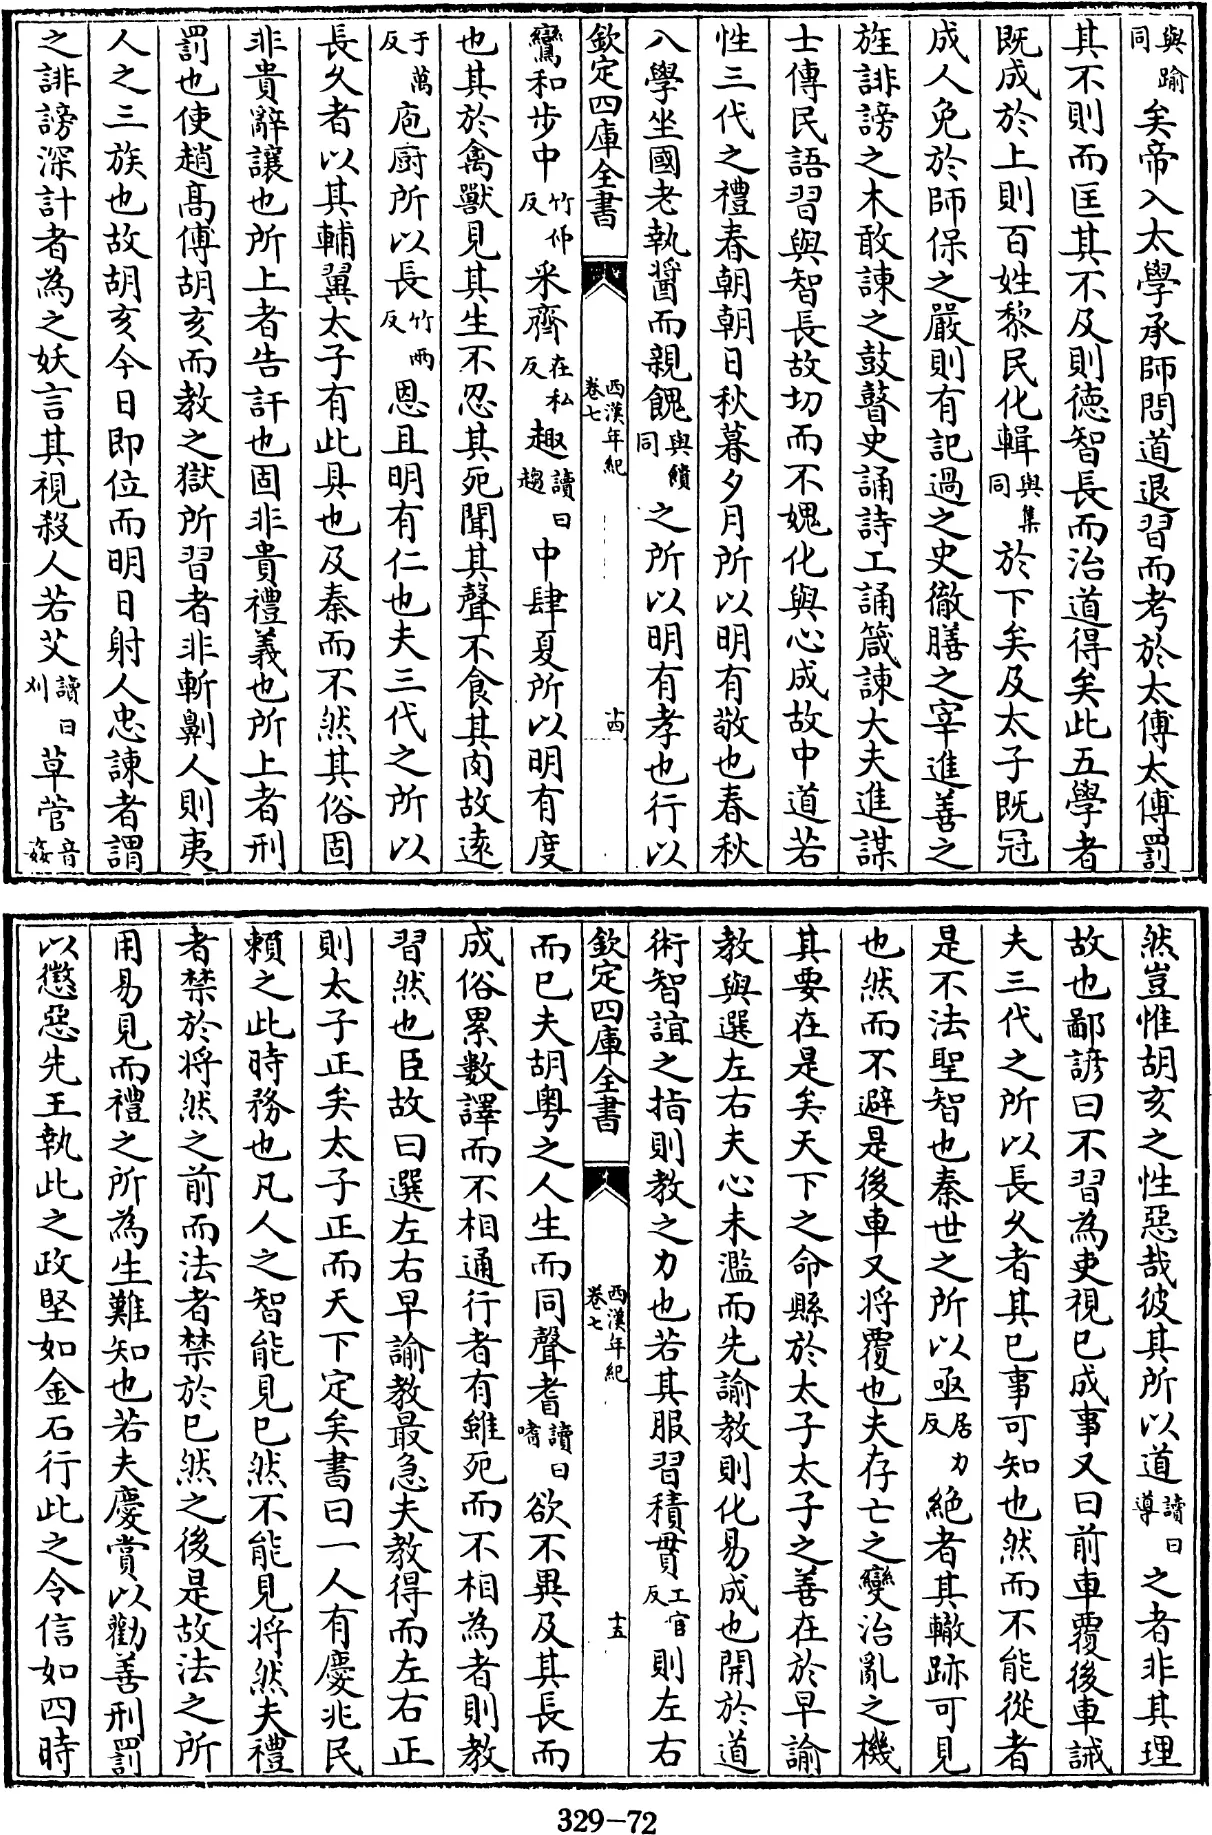 與踰同矣帝入太學承師問道退習而考於太傅太傅罰
其不則而匡其不及則德智長而治道得矣此五學者
既成於上則百姓黎民化輯與集同於下矣及太子既冠
成人免於師保之嚴則有記過之史徹膳之宰進善之
旌誹謗之木敢諫之鼓瞽史誦詩工誦箴諫大夫進謀
士傳民語習與智長故切而不媿化與心成故中道若
性三代之禮春朝朝日秋暮夕月所以明有敬也春秋
入學坐國老執醬而親餽與饋同之所以明有孝也行以
欽定四庫全書
西漢年紀
卷七
十四
鸞和步中竹仲反采齊在私反趣讀曰趨中肆夏所以明有度
也其於禽獸見其生不忍其死聞其聲不食其肉故遠
于萬反庖廚所以長竹兩反恩且明有仁也夫三代之所以
長久者以其輔翼太子有此具也及秦而不然其俗固
非貴辭讓也所上者告訐也固非貴禮義也所上者刑
罰也使趙高傅胡亥而教之獄所習者非斬劓人則夷
人之三族也故胡亥今日即位而明日射人忠諫者謂
之誹謗深計者為之妖言其視殺人若艾讀曰刈草菅音姦
然豈惟胡亥之性惡哉彼其所以道讀曰導之者非其理
故也鄙諺曰不習為吏視已成事又曰前車覆後車誡
夫三代之所以長久者其已事可知也然而不能從者
是不法聖智也秦世之所以亟居力反絕者其轍跡可見
也然而不避是後車又將覆也夫存亡之變治亂之機
其要在是矣天下之命縣於太子太子之善在於早諭
教與選左右夫心未濫而先諭教則化易成也開於道
術智誼之指則教之力也若其服習積貫工官反則左右
欽定四庫全書
西漢年紀
卷七
十五
而已夫胡粵之人生而同聲耆讀曰嗜欲不異及其長而
成俗累數譯而不相通行者有雖死而不相為者則教
習然也臣故曰選左右早諭教最急夫教得而左右正
則太子正矣太子正而天下定矣書曰一人有慶兆民
賴之此時務也凡人之智能見已然不能見將然夫禮
者禁於將然之前而法者禁於已然之後是故法之所
用易見而禮之所為生難知也若夫慶賞以勸善刑罰
以懲惡先王執此之政堅如金石行此之令信如四時
329-72